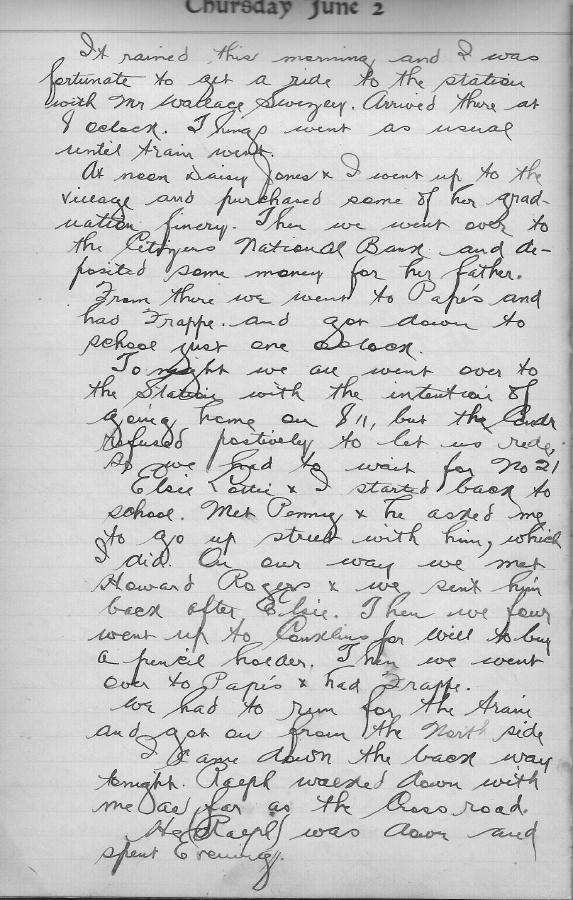 Thursday June 2
It rained this morning and I was
fortunate to get a ride to the station
with Mr Wallace Swezey. Arrived there at
8 oclock. Things went as usual
until train went.
At noon Daisy Jones & I went up to the
village and purchased some of her grad-
uation finery. Then we went over to
the Citizens National Bank and de-
posited some money for her father.
From there we went to Pape's and
had Frappe. and got down to
school just one oclock.
To night we all went over to
the Station with the intention of
going home on 811, but the Condr
refused postively to let us ride,
so we had to wait for No 21
Elsie Lottie & I started back to
school. Met Penny & he asked me
to go up street with him, which
I did. On our way we met
Howard Rogers & we sent him
back after Elsie. Then we four
went up to Conklins for Will to buy
a pencil holder. Then we went
over to Pape's & had Frappe.
We had to run for the train
and got on from the North side
I came down the back way
tonight. Ralph walked down with
me as far as the Cross road.
He (Ralph) was down and
spent Evening.